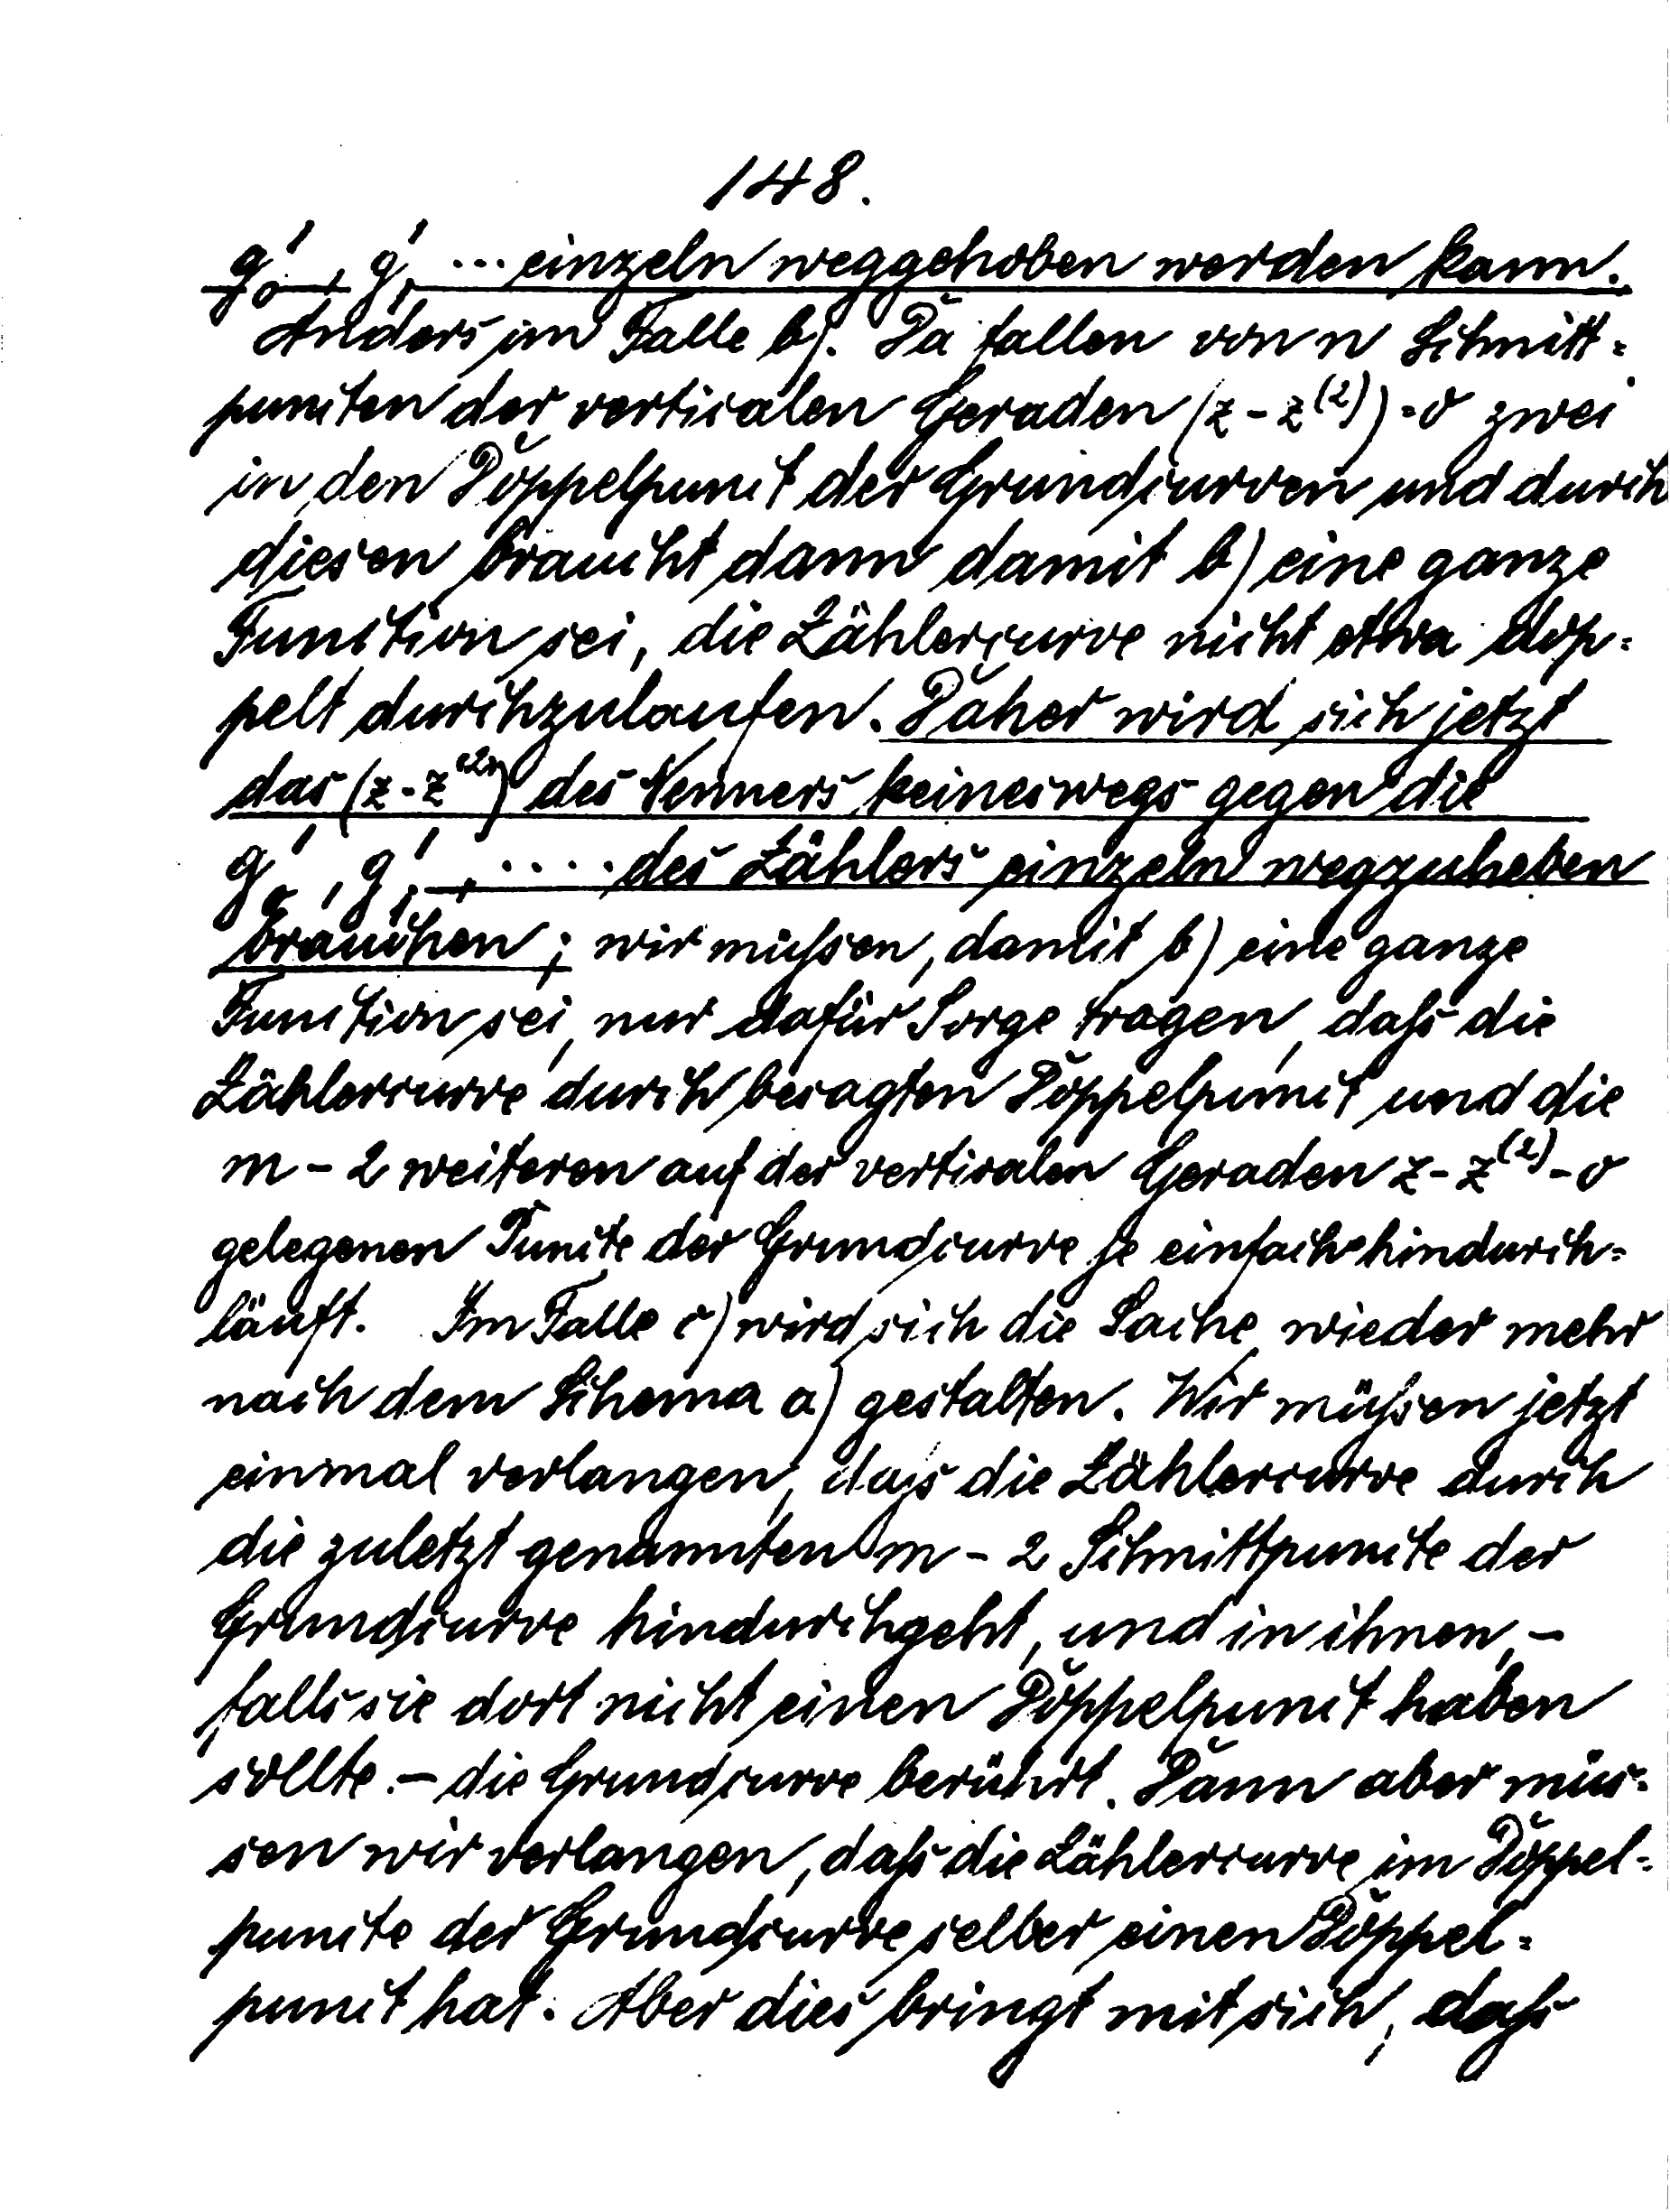 148.
g'₀, g'₁ ... einzeln weggehoben werden kann.
Anders im Falle b). Da fallen von n Schnitt-
puncten der verticalen Geraden (z - z⁽²⁾) = 0 zwei
in den Doppelpunct der Grundcurven und durch
diesen braucht dann damit b) eine ganze
Function sei, die Zählercurve nicht etwa dop-
pelt durchzulaufen. Daher wird sich jetzt
das (z - z⁽²⁾) des Nenners keineswegs gegen die
g'₀, g'₁, .... des Zählers einzeln wegzuheben
brauchen; wir müssen, damit b) eine ganze
Function sei, nur dafür Sorge tragen, daß die
Zählercurve durch besagten Doppelpunct und die
m - 2 weiteren auf der verticalen Geraden z - z⁽²⁾ = 0
gelegenen Puncte der Grundcurve je einfach hindurch-
läuft. Im Falle c) wird sich die Sache wieder mehr
nach dem Schema a) gestalten. Wir müssen jetzt
einmal verlangen, dass die Zählercurve durch
die zuletzt genannten m - 2 Schnittpuncte der
Grundcurve hindurchgeht, und in ihnen, -
falls sie dort nicht einen Doppelpunct haben
sollte. - die Grundcurve berührt. Dann aber müs-
sen wir verlangen, daß die Zählercurve im Doppel-
puncte der Grundcurve selber einen Doppel-
punct hat. Aber dies bringt mit sich, daß